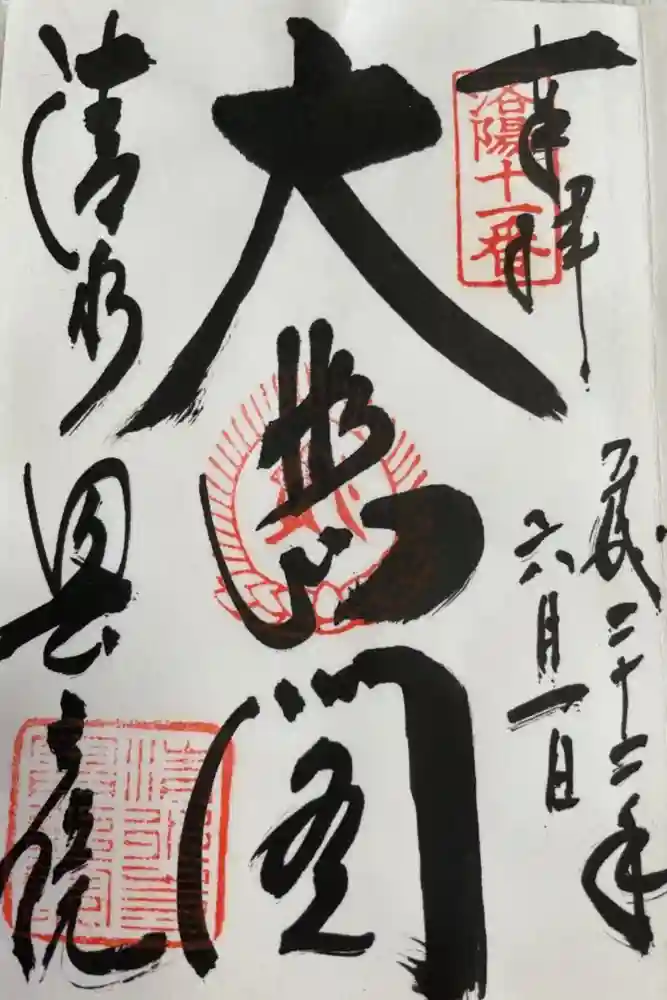 奉拝
洛陽十一番
平成二十二年
六月一日
大悲閣
清水
奥之院